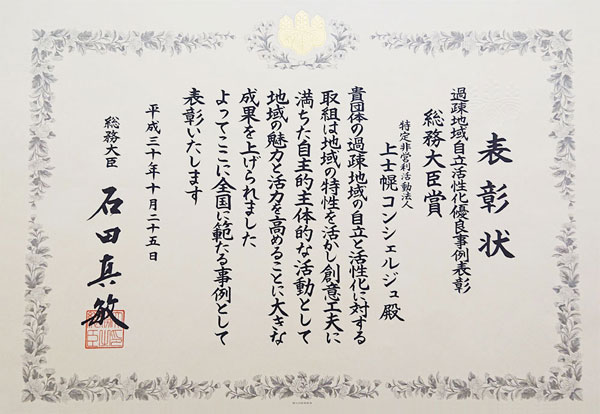 表彰状
過疎地域自立活性化優良事例表彰
総務大臣賞
特定非営利活動法人
上士幌コンシェルジュ殿
貴団体の過疎地域の自立と活性化に対する
取組は地域の特性を活かし創意工夫に
満ちた自主的主体的な活動として
地域の魅力と活力を高めることに大きな
成果を上げられました
よってここに全国に範たる事例として
表彰いたします
平成三十年十月二十五日
総務大臣
石田真敏